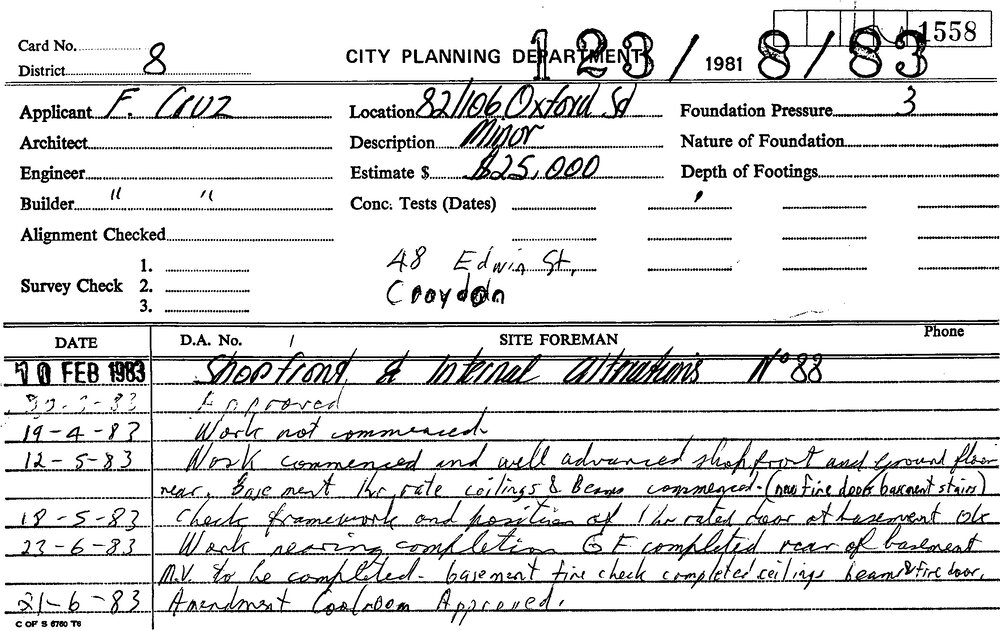 1558
Card No. CITY PLANNING DEPARTMENT 123/ 1981 8/83
District 8
Applicant F. Cruz Location 82/106 Oxford St Foundation Pressure 3
Architect Description Minor Nature of Foundation
Engineer Estimate $ $25,000 Depth of Footings
Builder " " Conc. Tests (Dates)
Alignment Checked
48 Edwin St,
Croydon
Survey Check 1.
2.
3.
DATE D.A. No. SITE FOREMAN Phone
10 FEB 1983 Shopfront & Internal alterations No 88
Approved
19-4-83 Work not commenced.
12-5-83 Work commenced and well advanced shopfront and ground floor
rear. Basement 1hr rate ceilings & Beams commenced. (new fire doors basement stairs)
18-5-83 Check framework and position of 1hr rated door at basement ok
23-6-83 Work nearing completion G F completed rear of basement
M.V. to be completed - basement fire check completed ceilings beam & fire door.
21-6-83 Amendment Coolroom Approved.
C OF S 6760 T6